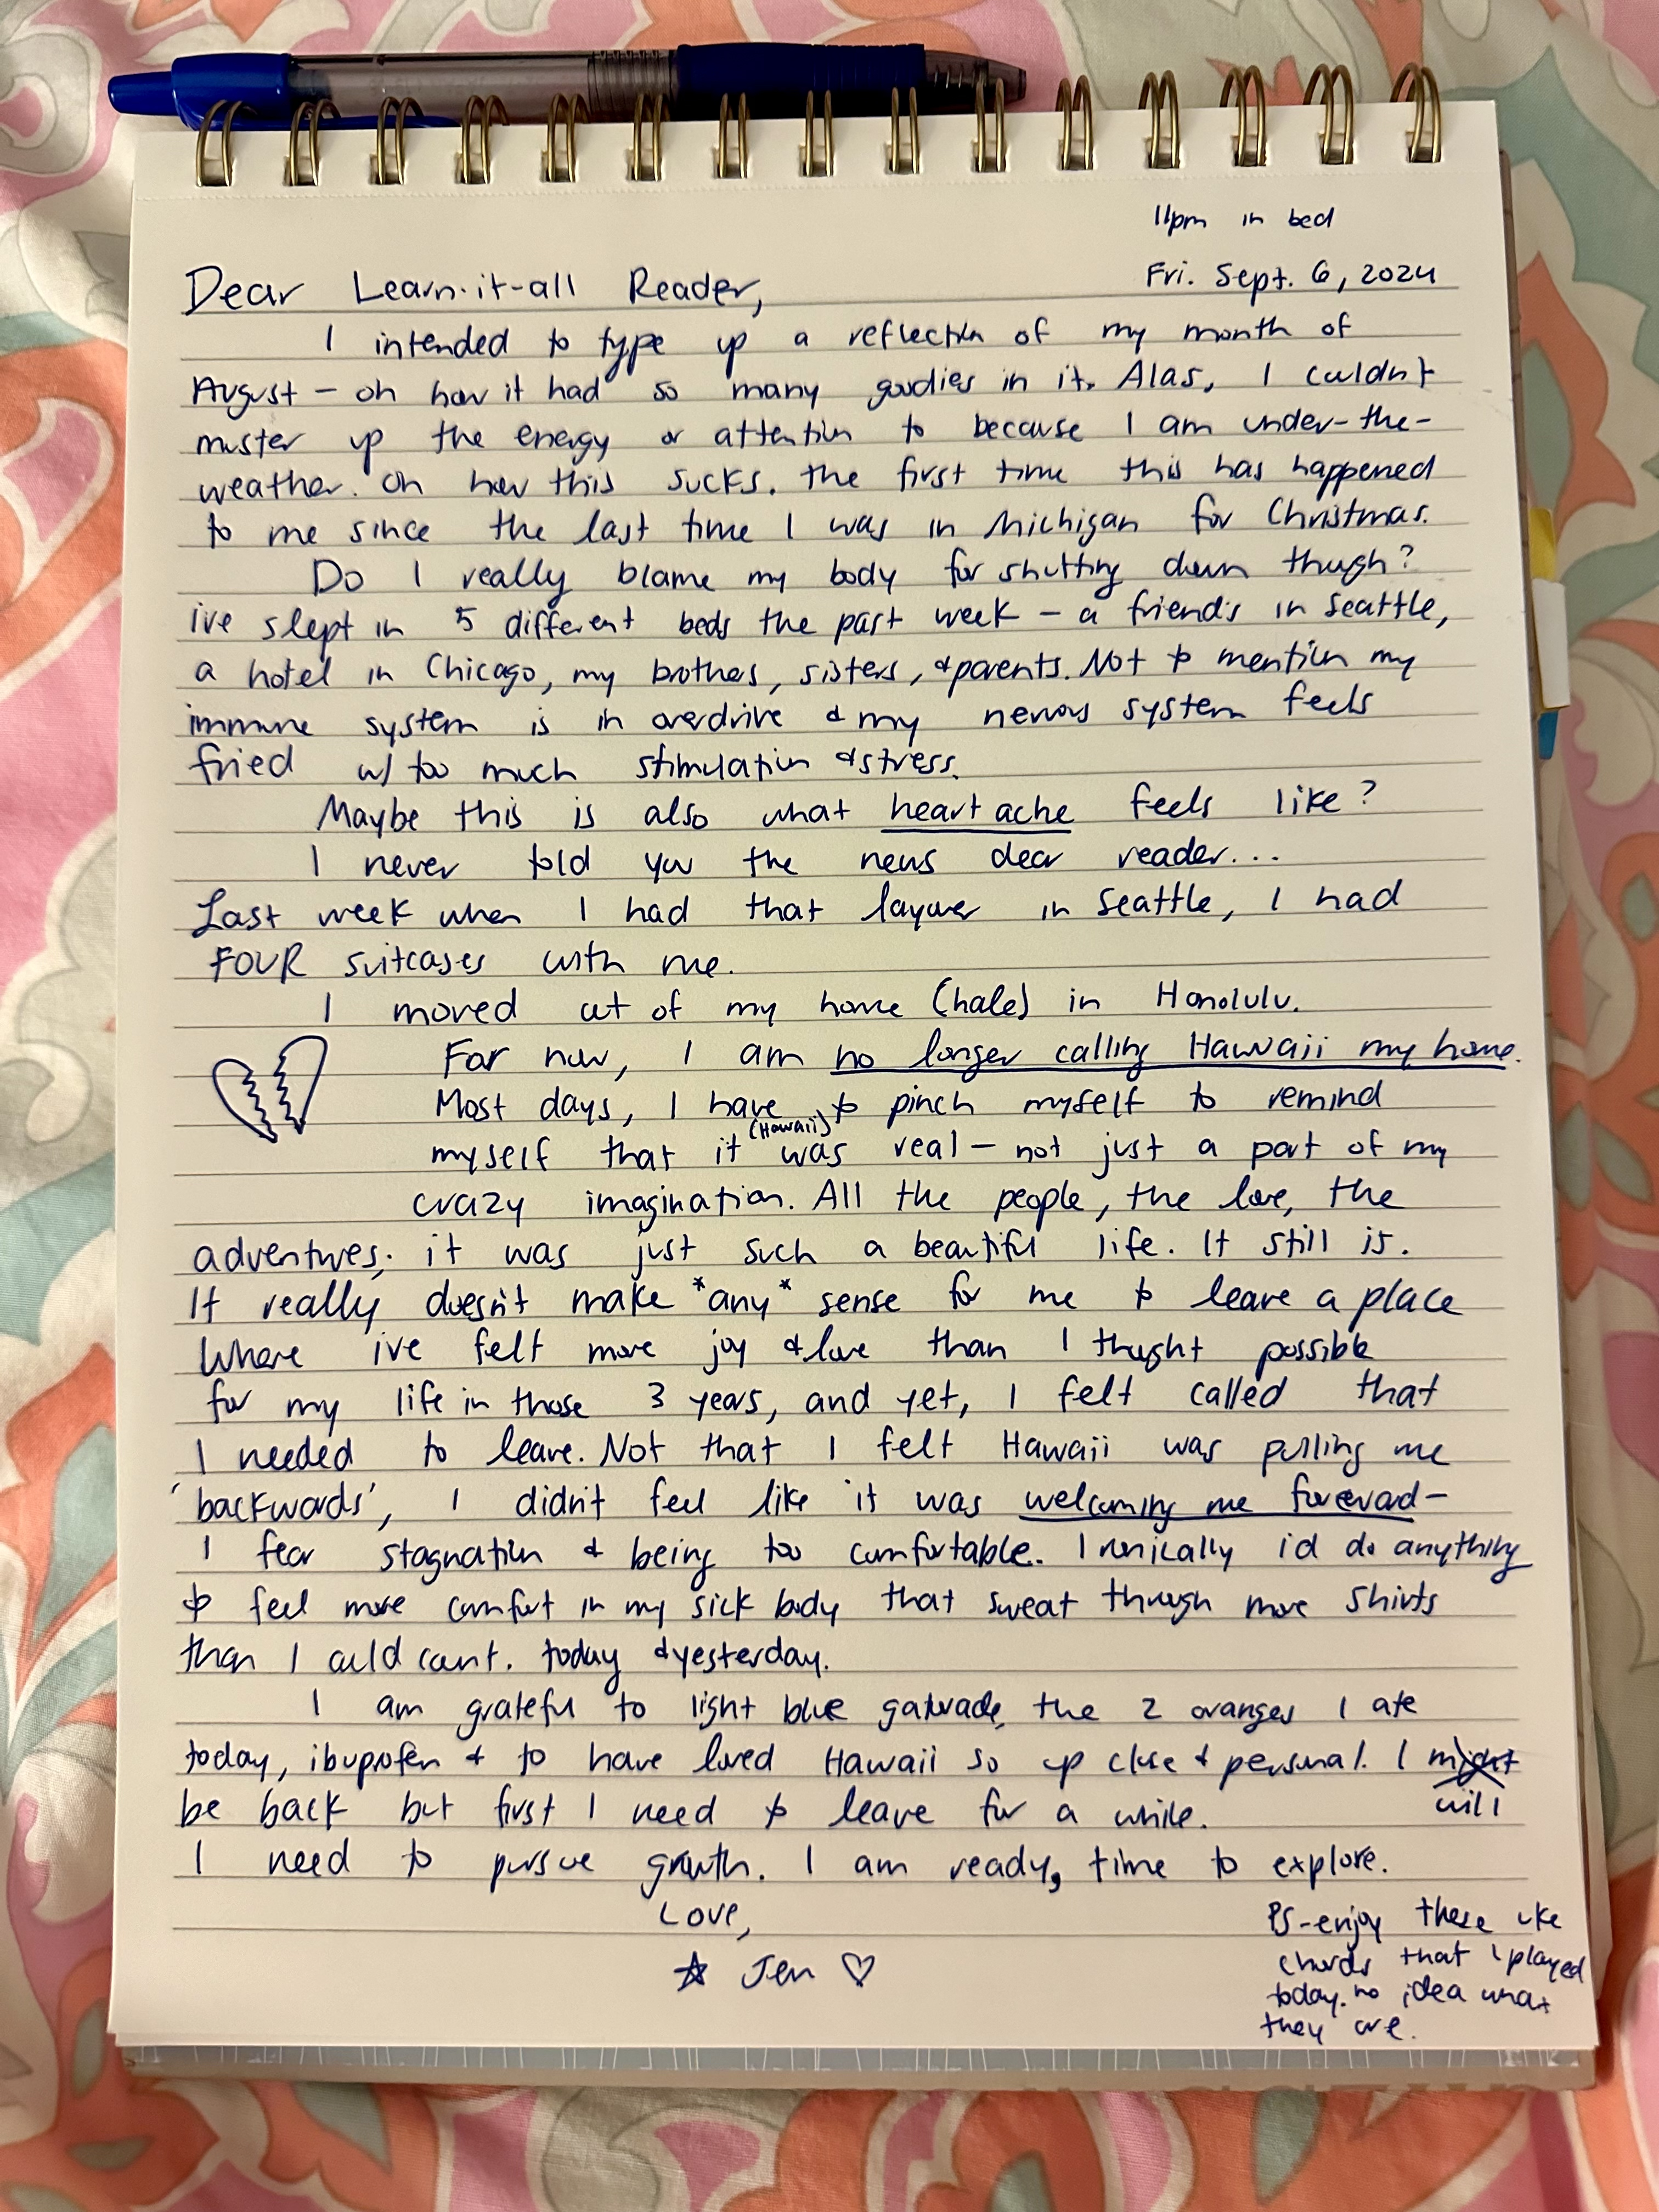 11pm in bed
Fri. Sept. 6, 2024
Dear Learn-it-all Reader,
I intended to type up a reflection of my month of
August - oh how it had so many goodies in it. Alas, I couldn't
muster up the energy or attention to because I am under-the-
weather. Oh how this sucks. The first time this has happened
to me since the last time I was in Michigan for Christmas.
Do I really blame my body for shutting down though?
ive slept in 5 different beds the past week - a friend's in Seattle,
a hotel in Chicago, my brothers, sisters, & parents. Not to mention my
immune system is in overdrive & my nervous system feels
fried w/ too much stimulation & stress.
Maybe this is also what heart ache feels like?
I never told you the news dear reader...
Last week when I had that layover in Seattle, I had
FOUR suitcases with me.
I moved out of my home (hale) in Honolulu.
For now, I am no longer calling Hawaii my home.
Most days, I have to pinch myself to remind
myself that it (Hawaii) was real - not just a part of my
crazy imagination. All the people, the love, the
adventures; it was just such a beautiful life. It still is.
It really doesn't make *any* sense for me to leave a place
Where ive felt more joy & love than I thought possible
for my life in those 3 years, and yet, I felt called that
I needed to leave. Not that I felt Hawaii was pulling me
'backwards', I didn't feel like it was welcoming me foreward -
I fear stagnation & being too comfortable. Ironically i'd do anything
to feel more comfort in my sick body that sweat through more shirts
than I could count. today & yesterday.
I am grateful to light blue gatorade, the 2 oranges I ate
today, ibuprofen & to have loved Hawaii so up close & personal. I might
will
be back but first I need to leave for a while.
I need to pursue growth. I am ready, time to explore.
Love,
☆ Jen ♡
PS-enjoy these uke
chords that I played
today. no idea what
they are.